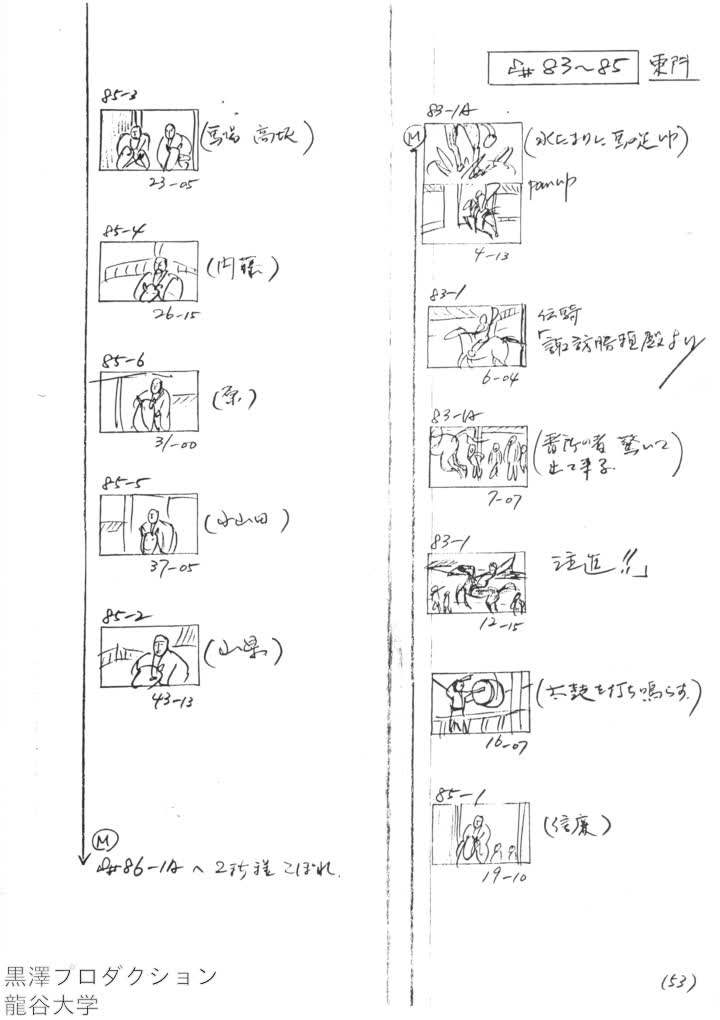 #83~85 東門
83-1A
M
(水たまりに馬の足up)
panup
4-13
83-1
伝騎
「諏訪勝頼殿より
6-04
83-1A
(番所の者 驚いて
出て来る)
7-07
83-1
注進!!」
12-15
(太鼓を打ち鳴らす)
16-07
85-1
(信廉)
19-10
85-3
(馬場 高坂)
23-05
85-4
(内藤)
26-15
85-6
(原)
31-00
85-5
(小山田)
37-05
85-2
(山県)
43-13
M
#86-1Aへ
こぼれ.
(53)
黒澤プロダクション
龍谷大学